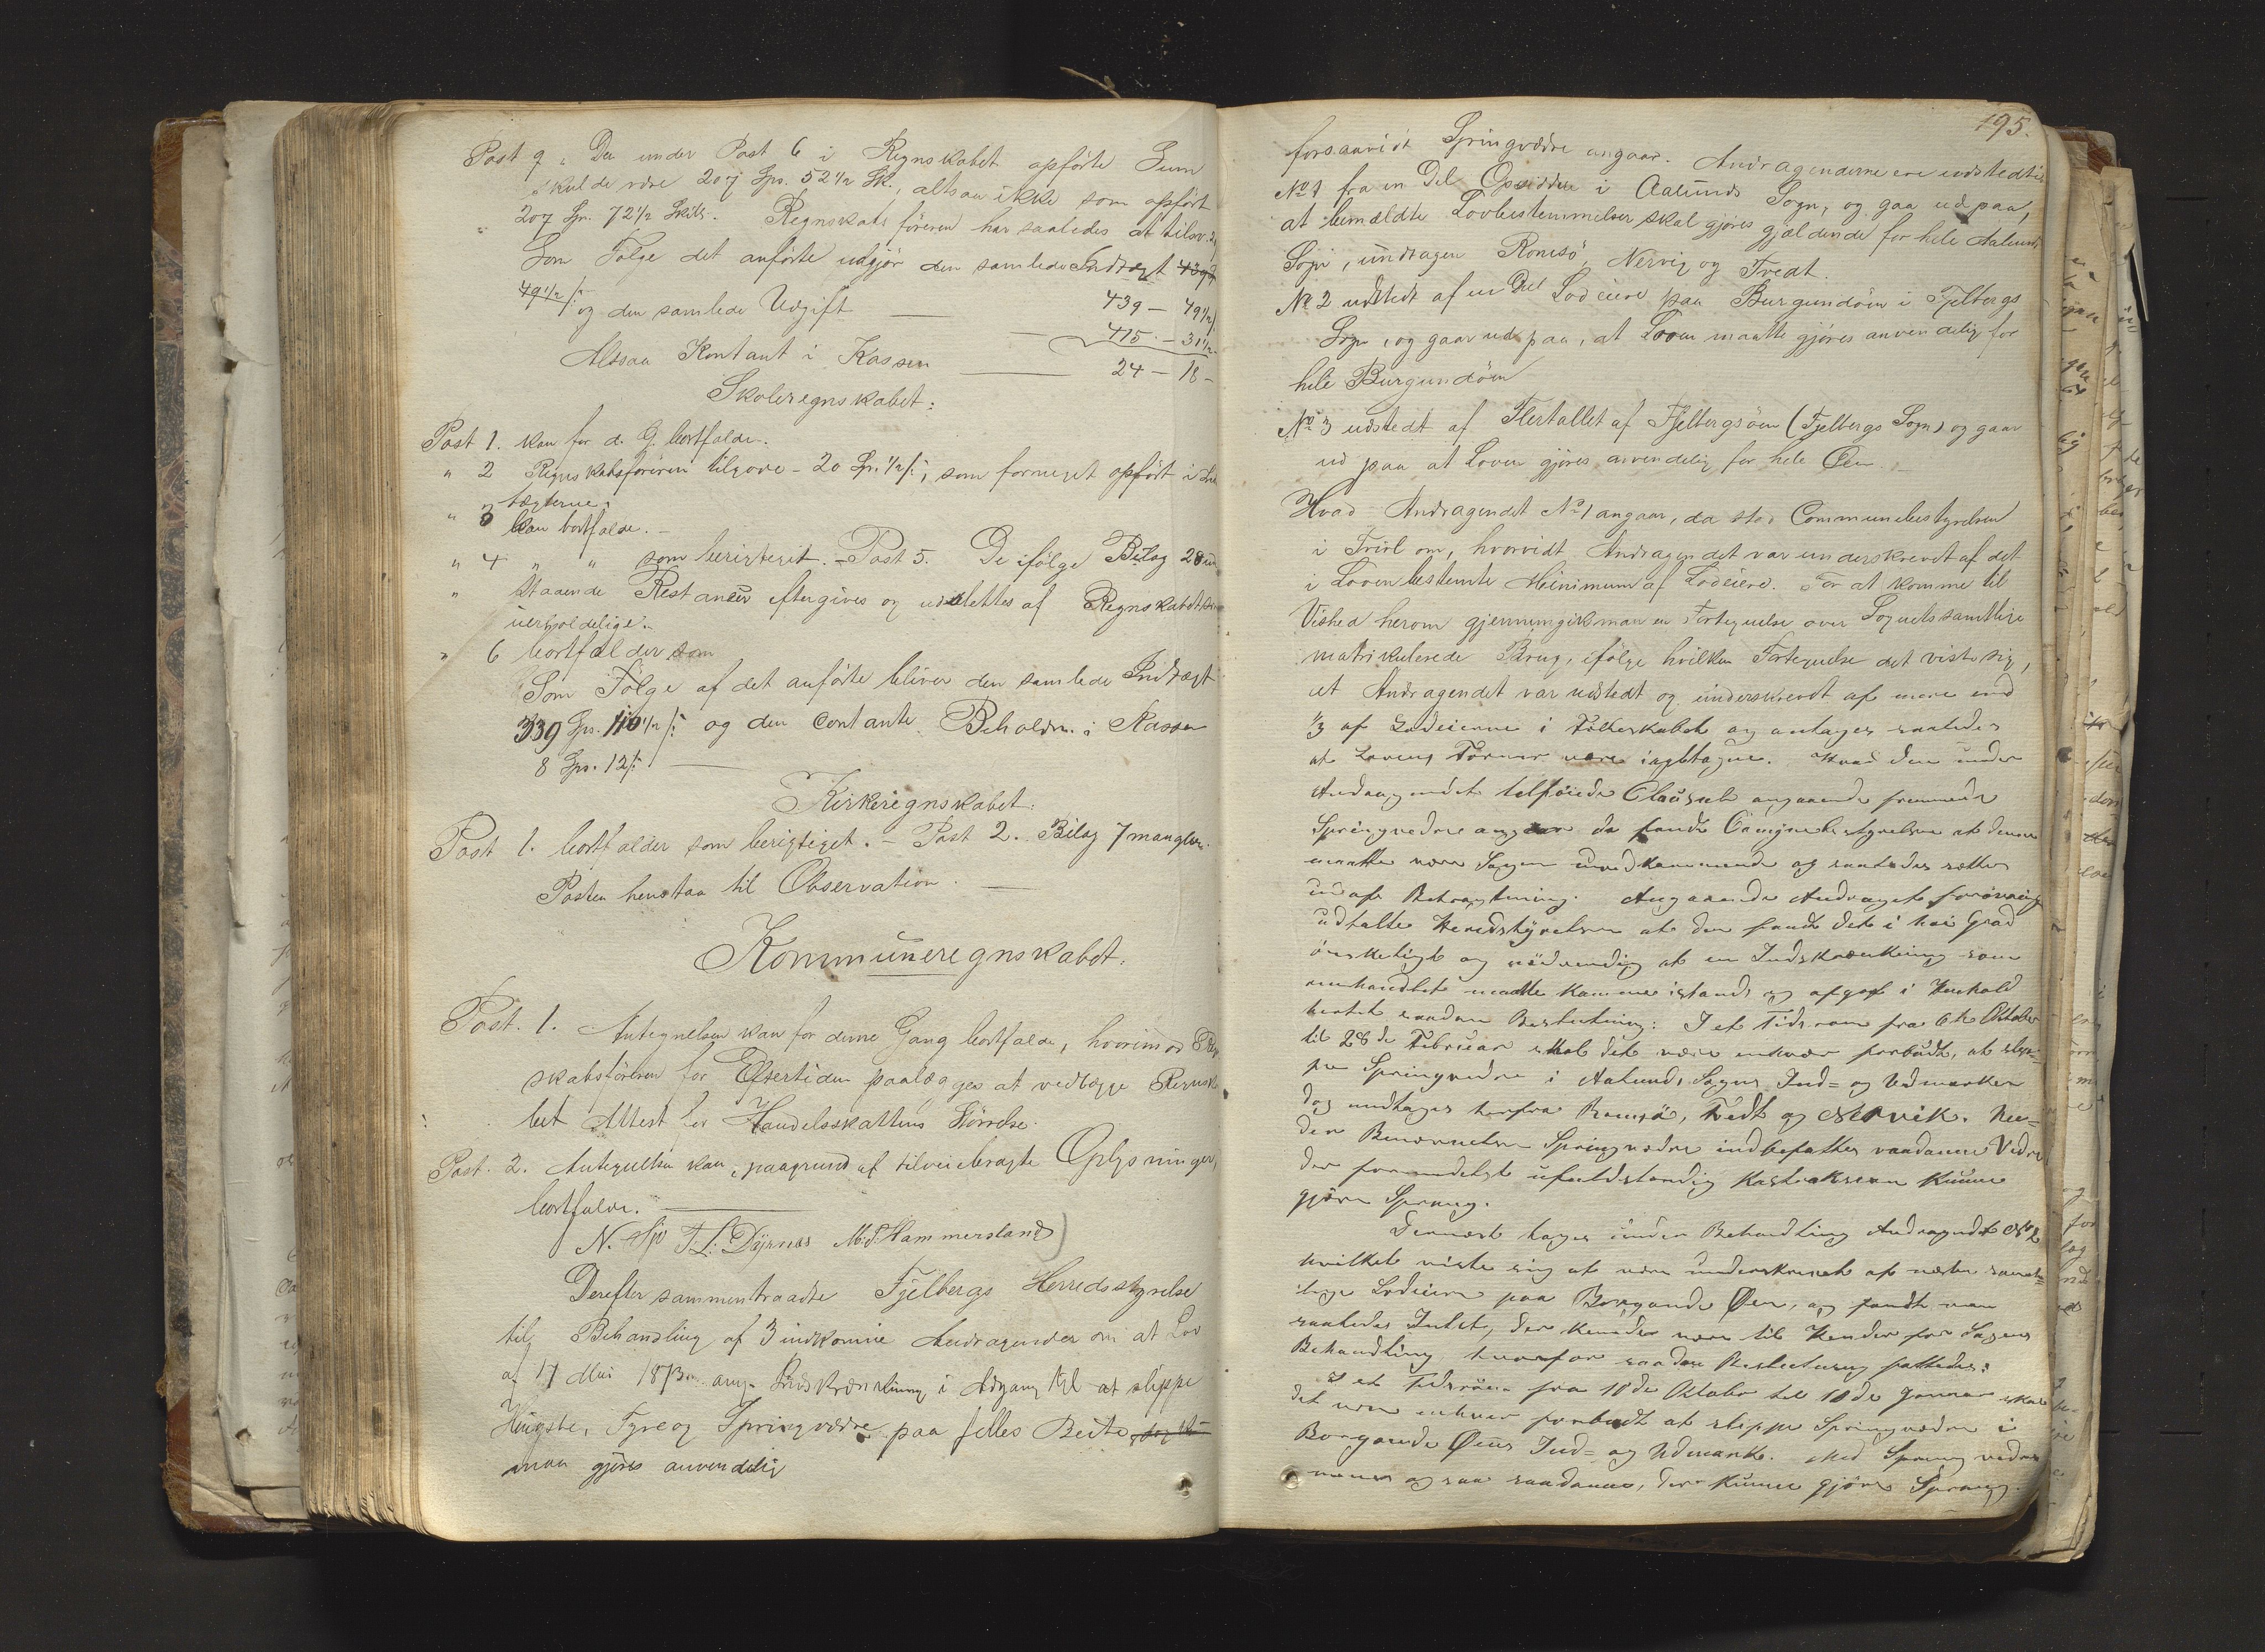 Post 9. Den under Post 6 i Regnskabet opførte Sum
skulde være 207 Spr. 52 1/2 Sk., altsaa ikke som opført
207 Sp. 72 1/2 Skill. Regnskabsføreren har saaledes at tilsv.
Som Følge det anførte udgjør den samlede Indtægt
49 1/2 ß og den samlede Udgift — 439 — 49 1/2
— 415 — 31 1/2
Altsaa Kontant i Kassen — 24 — 18 —
Skoleregnskabet:
Post 1. kan for d. G. bortfalde.
" 2 Regnskabsføreren tilgode — 20 Sp. 1/2 ß, som formeget opført i Ind
tægterne.
" 3 kan bortfalde. —
" 4 " " som berigtiget. — Post 5. De ifølge Bilag 28 ud
" staaende Restancer eftergives og udslettes af Regnskabet som
uerholdelige.
" 6 bortfalder som
Som Følge af det anførte bliver den samlede Indtægt
339 Sp. 110 1/2 ß og den contante Beholdn. i Kassen
8 Sp. 12 ß —
Kirkeregnskabet:
Post 1. bortfalder som berigtiget. — Post 2. Bilag 7 mangler.
Posten henstaa til Observation. —
Kommuneregnskabet.
Post. 1. Antegnelsen kan for denne Gang bortfalde, hvorimod Regn
skabsføreren for Eftertiden paalægges at vedlægge Regnska
bet Attest for Handelsskattens Størrelse.
Post. 2. Antegnelsen kan, paagrund af tilveiebragte Oplysninger,
bortfalde. —
N. Sjo T. L. Døsnæs M. J. Hammersland
Derefter sammentraadte Fjelbergs Herredsstyrelse
til Behandling af 3 indkomne Andragender om at Lov
af 17 Mai 1873 ang. Indskrænkning i Adgang til at slippe
Hingste, Tyre og Springvædre paa fælles Beite
maa gjøres anvendelig
195.
forsaavidt Springvædre angaar. Andragenderne ere udstedte
No 1 fra en Del Opsiddere i Aalunds Sogn, og gaa ud paa,
at bemældte Lovbestemmelser skal gjøres gjældende for hele Aalunds
Sogn, undtagen Romsö, Nervig og Tvedt.
No 2 udstedt af en Del Lodeiere paa Burgundöen i Fjelbergs
Sogn, og gaar ud paa, at Loven maatte gjøres anvendelig for
hele Burgundöen
No 3 udstedt af Flertallet af Fjelbergsöen (Fjelbergs Sogn) og gaar
ud paa at Loven gjøres anvendelig for hele Öen.
Hvad Andragendet No 1 angaar, da stod Communebestyrelsen
i Tvivl om, hvorvidt Andragendet var underskrevet af det
i Loven bestemte Minimum af Lodeiere. For at komme til
Vished herom gjennemgik man en Fortegnelse over Sognets samtlige
matrikulerede Brug, ifølge hvilken Fortegnelse det viste sig,
at Andragendet var udstedt og underskrevet af mere end
1/3 af Lodeierne i Fælleskabet og antages saaledes
at Lovens Former være iagttagne. Hvad den under
Andragendet tilføiede Clausul angaaende fremmede
Springvædre angaar da fandt Comunebestyrelsen at denne
maatte være Sagen uvedkommende og saaledes sættes
ud af Betragtning. Angaaende Andraget forøvrig
udtalte Heredstyrelsen at den fandt det i høi Grad
ønskeligt og nødvendig at en Indskrænkning som
omhandlet maatte komme istand og afgav i Henhold
hertil saadan Beslutning: I et Tidsrum fra 6te Oktober
til 28de Februar skal det være enhver forbudt, at slip-
pe Springvædre i Aalunds Sogns Ind- og Udmarker
dog undtages herfra Romsö, Tvedt og Nervik. Un-
der Benævnelsen Springvædre indbefattes saadanne Vædre
der formedelst ufuldstændig Kastraksion kunne
gjøre Sprang.
Dernæst toges under Behandling Andragendet No 2
hvilket viste sig at være underskrevet af næsten samt-
lige Lodeiere paa Borgunde Øen, og fandt man
saaledes Intet, der kunde være til Hinder for Sagens
Behandling hvorfor saadan Beslutning fattedes:
I et Tidsrum fra 10de Oktober til 10de Januar skal
det være enhver forbudt at slippe Springvædre i
Borgunde Øens Ind- og Udmark. Med Springvædre
menes og saa saadanne, der kunne gjøre Sprang.